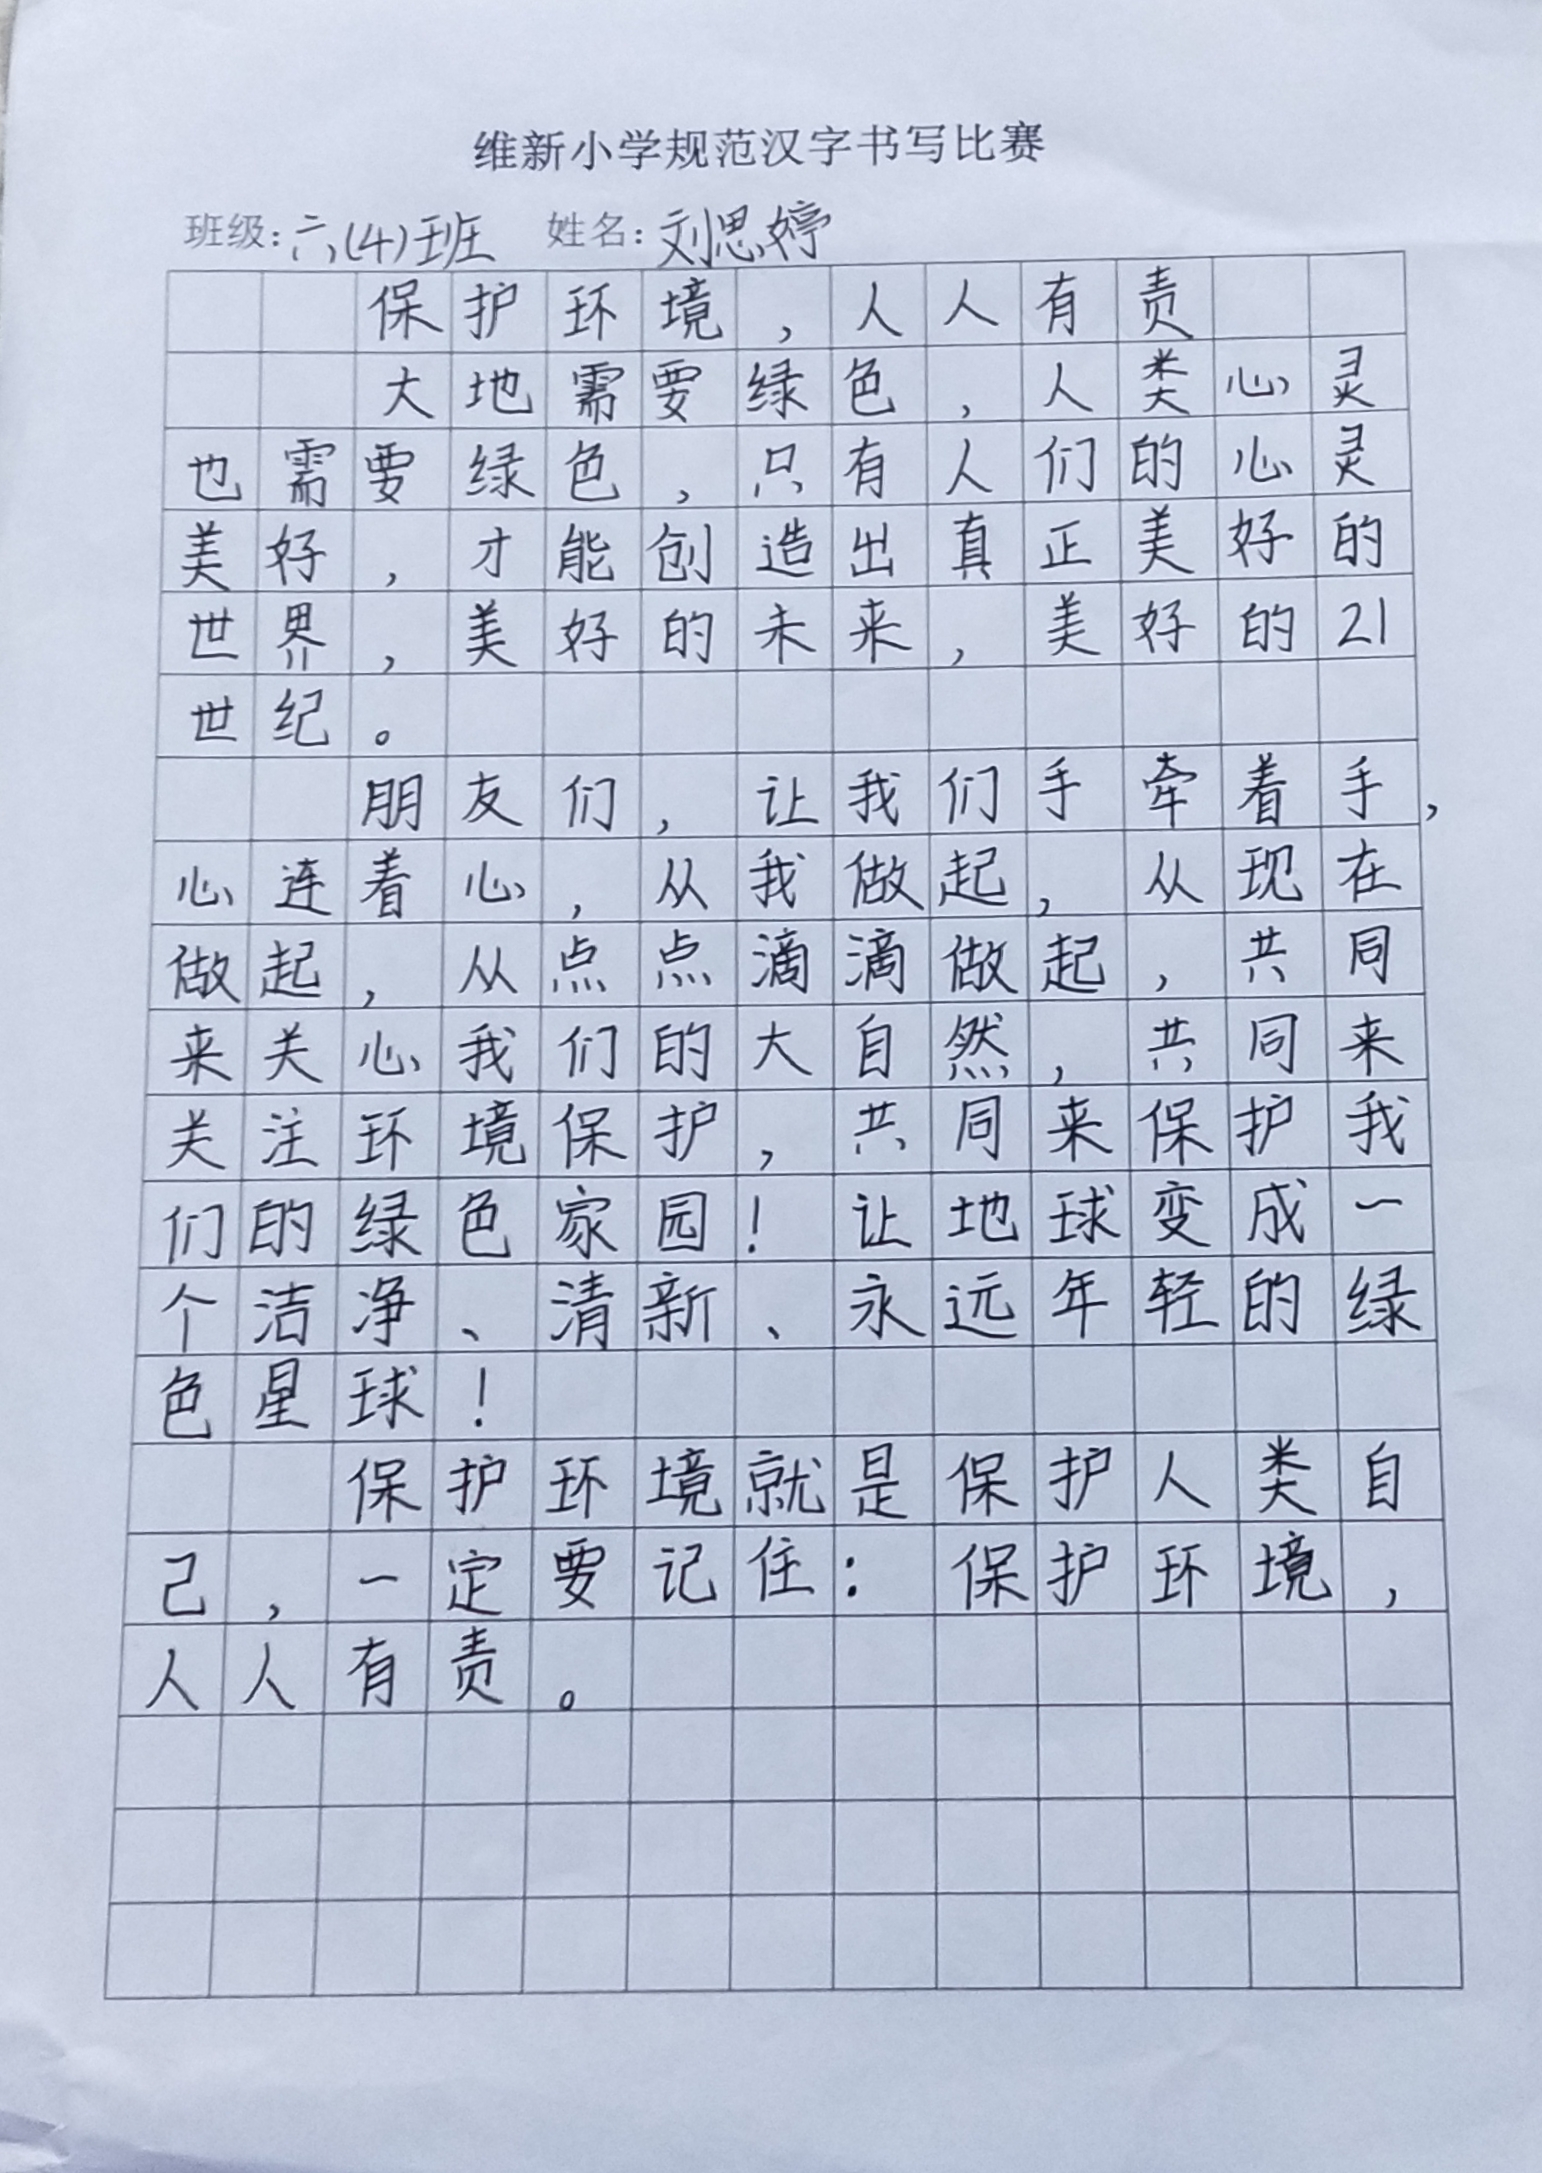 维新小学规范汉字书写比赛
班级：六(4)班 姓名：刘思婷
保护环境，人人有责
大地需要绿色，人类心灵
也需要绿色，只有人们的心灵
美好，才能创造出真正美好的
世界，美好的未来，美好的21
世纪。
朋友们，让我们手牵着手，
心连着心，从我做起，从现在
做起，从点点滴滴做起，共同
来关心我们的大自然，共同来
关注环境保护，共同来保护我
们的绿色家园！让地球变成一
个洁净、清新、永远年轻的绿
色星球！
保护环境就是保护人类自
己，一定要记住：保护环境，
人人有责。